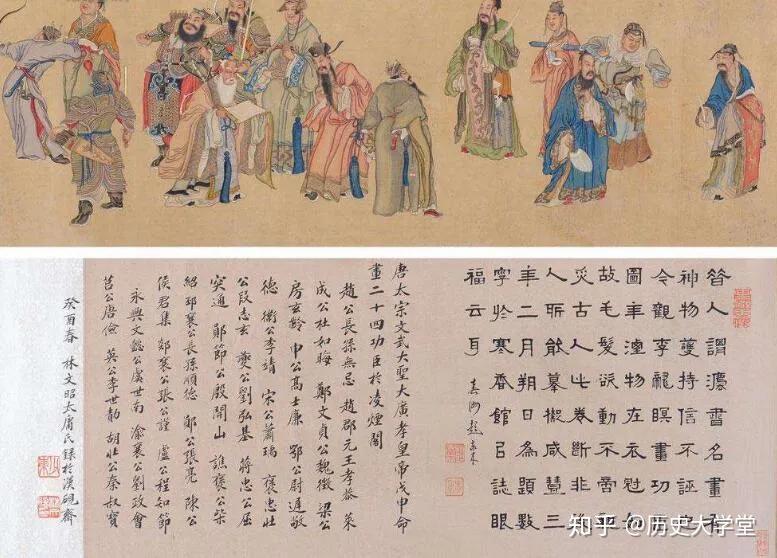 昝人謂灋書名畫有
神物蒦持信不誣也
今觀李龍瞑畫功臣
圖年湮物在衣冠如
故毛髮欲動不啻
災古人此卷斷非後
人所能摹擬咸豐三
年二月朔日為題數
字於寒香館㠯誌眼
福云耳 真州趙
唐太宗文武大聖大廣孝皇帝戊申命
畫二十四功臣於凌煙閣
趙公長孫無忌 趙郡元王孝恭 萊
成公杜如晦 鄭文貞公魏徵 梁公
房玄齡 申公高士廉 鄂公尉遲敬
德 衛公李靖 宋公蕭瑀 褒忠壯
公段志玄 夔公劉弘基 蔣忠公屈
突通 鄖節公殷開山 譙襄公柴
紹 邳襄公長孫順德 鄖公張亮 陳公
侯君集 郯襄公張公謹 盧公程知節
永興文懿公虞世南 渝襄公劉政會
莒公唐儉 英公李世勣 胡壯公秦叔寶
癸酉春 林文昭太庸氏錄於漢硯齋
知乎 @历史大学堂